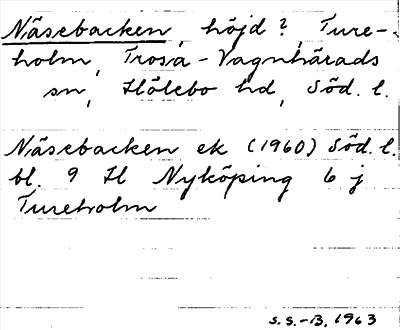 Näsebacken, höjd?, Ture-
holm, Trosa-Vagnhärads
sn, Hölebo hd, Söd. l.
Näsebacken ek (1960) Söd. l.
bl. 9 H Nyköping 6 j
Tureholm
S.S.-B. 1963